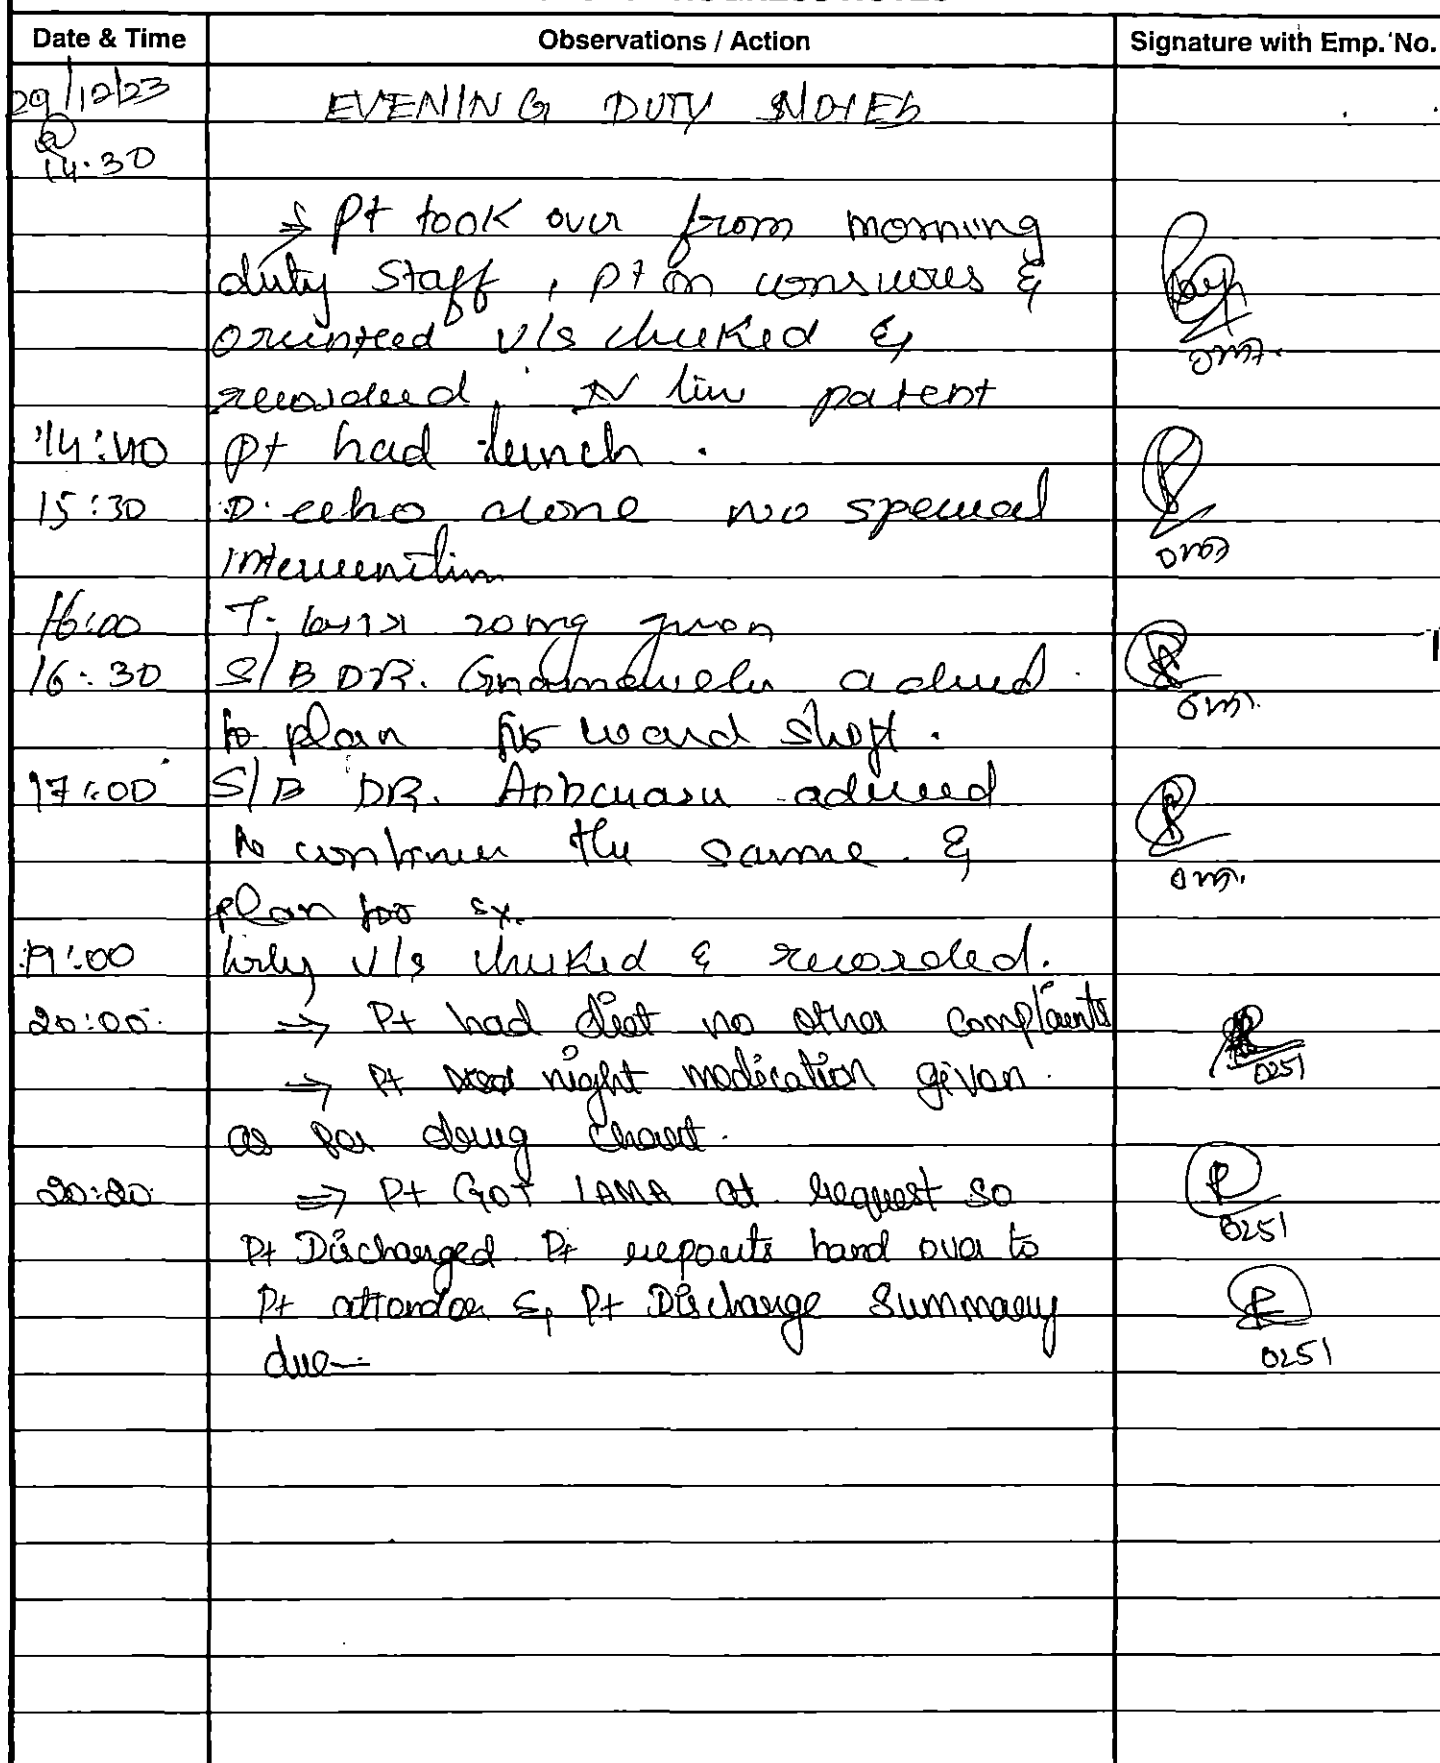 Date & Time Observations / Action Signature with Emp. No.
29/12/23 EVENING DUTY NOTES
@
14:30
→ Pt took over from morning
duty staff, pt on &
v/s checked &
recorded, IV line patent
14:40 Pt had lunch.
15:30 echo done no special
16:00 T. 20mg given
16:30 S/B DR. advised
to plan for ward shift.
17:00 S/B DR. advised
to continue the same &
plan for sx.
19:00 v/s checked & recorded.
20:00 ⇒ Pt had diet no other complaints
0251
⇒ Pt night medication given
as per drug chart.
20:20 ⇒ Pt GOT LAMA at request so
0251
Pt Discharged Pt reports hand over to
Pt attender & Pt Discharge Summary
due
0251